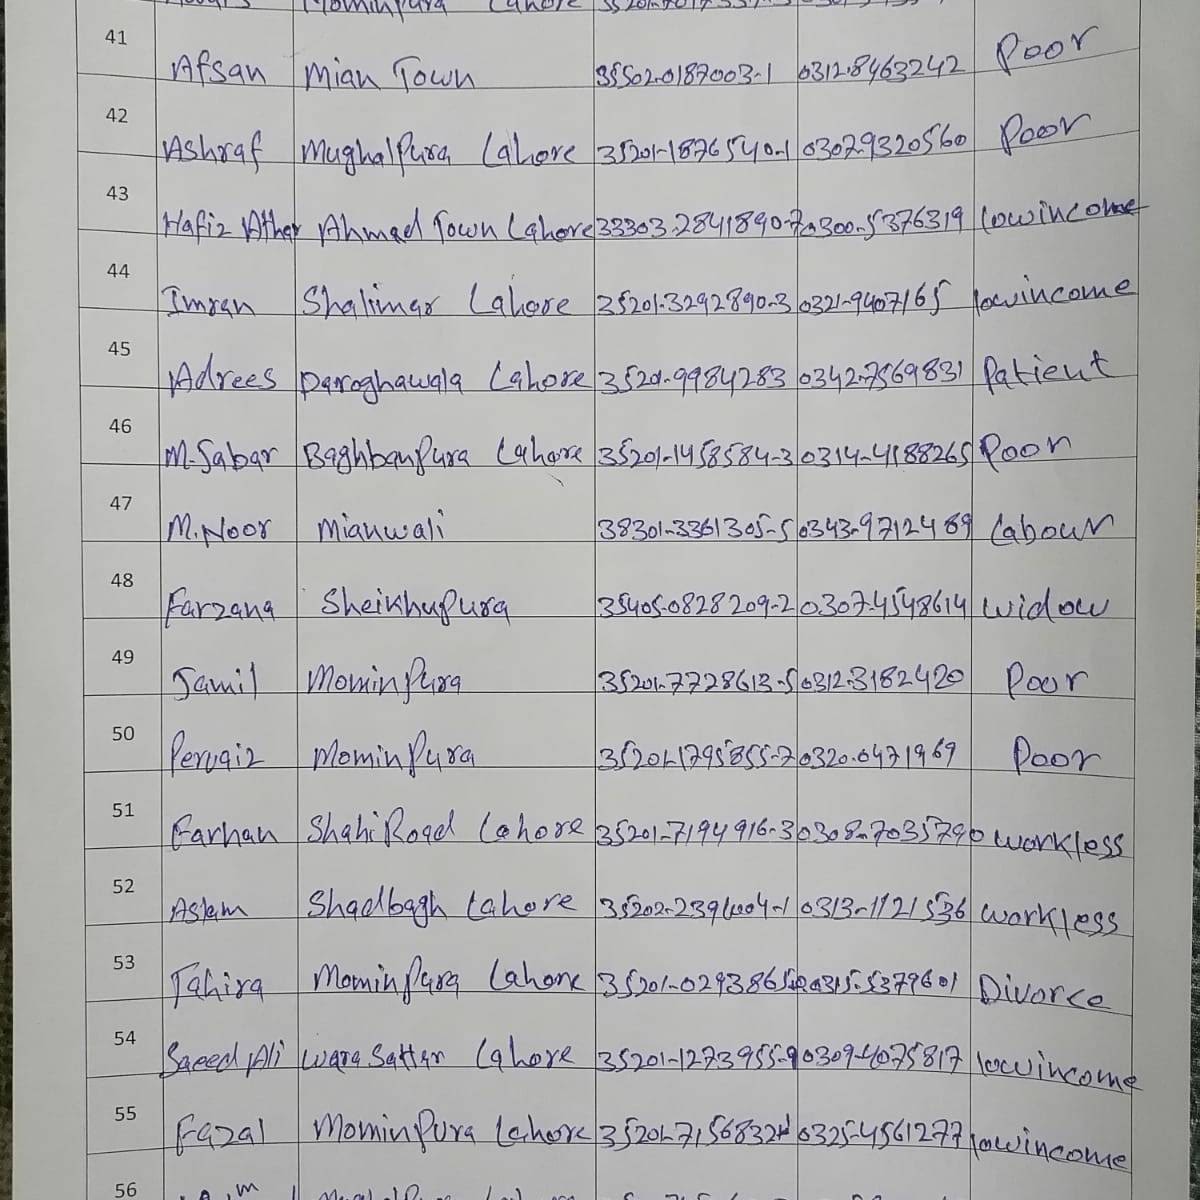 41 Afsan Mian Town 35502-0187003-1 0312-8463242 Poor
42 Ashraf Mughalpura Lahore 35201-1876540-1 0307-9320560 Poor
43 Hafiz Ather Ahmad Town Lahore 33303-2841890-7 0300-5376319 lowincome
44 Imran Shalimar Lahore 35201-3292890-3 0321-9407165 lowincome
45 Adrees Daroghawala Lahore 0342-7569831 Patient
46 M.Sabar Baghbanpura Lahore 35201-1458584-3 0314-4188265 Poor
47 M.Noor Mianwali 38301-3361305-5 0343-9712489 Labour
48 Farzana Sheikhupura 35405-0828209-2 0307-4548614 widow
49 Jamil Mominpura 35201-7728613-5 0312-3182420 Poor
50 Pervaiz Mominpura 35201-1795855-7 0320-0471969 Poor
51 Farhan Shahi Road Lahore 35201-7194916-3 0308-7035790 workless
52 Aslam Shadbagh Lahore 0313-1121536 workless
53 Tahira Mominpura Lahore 0315-5379601 Divorce
54 Saeed Ali Wara Sattar Lahore 35201-1273955-9 0309-4075817 lowincome
55 Fazal Mominpura Lahore 0325-4561277 lowincome
56